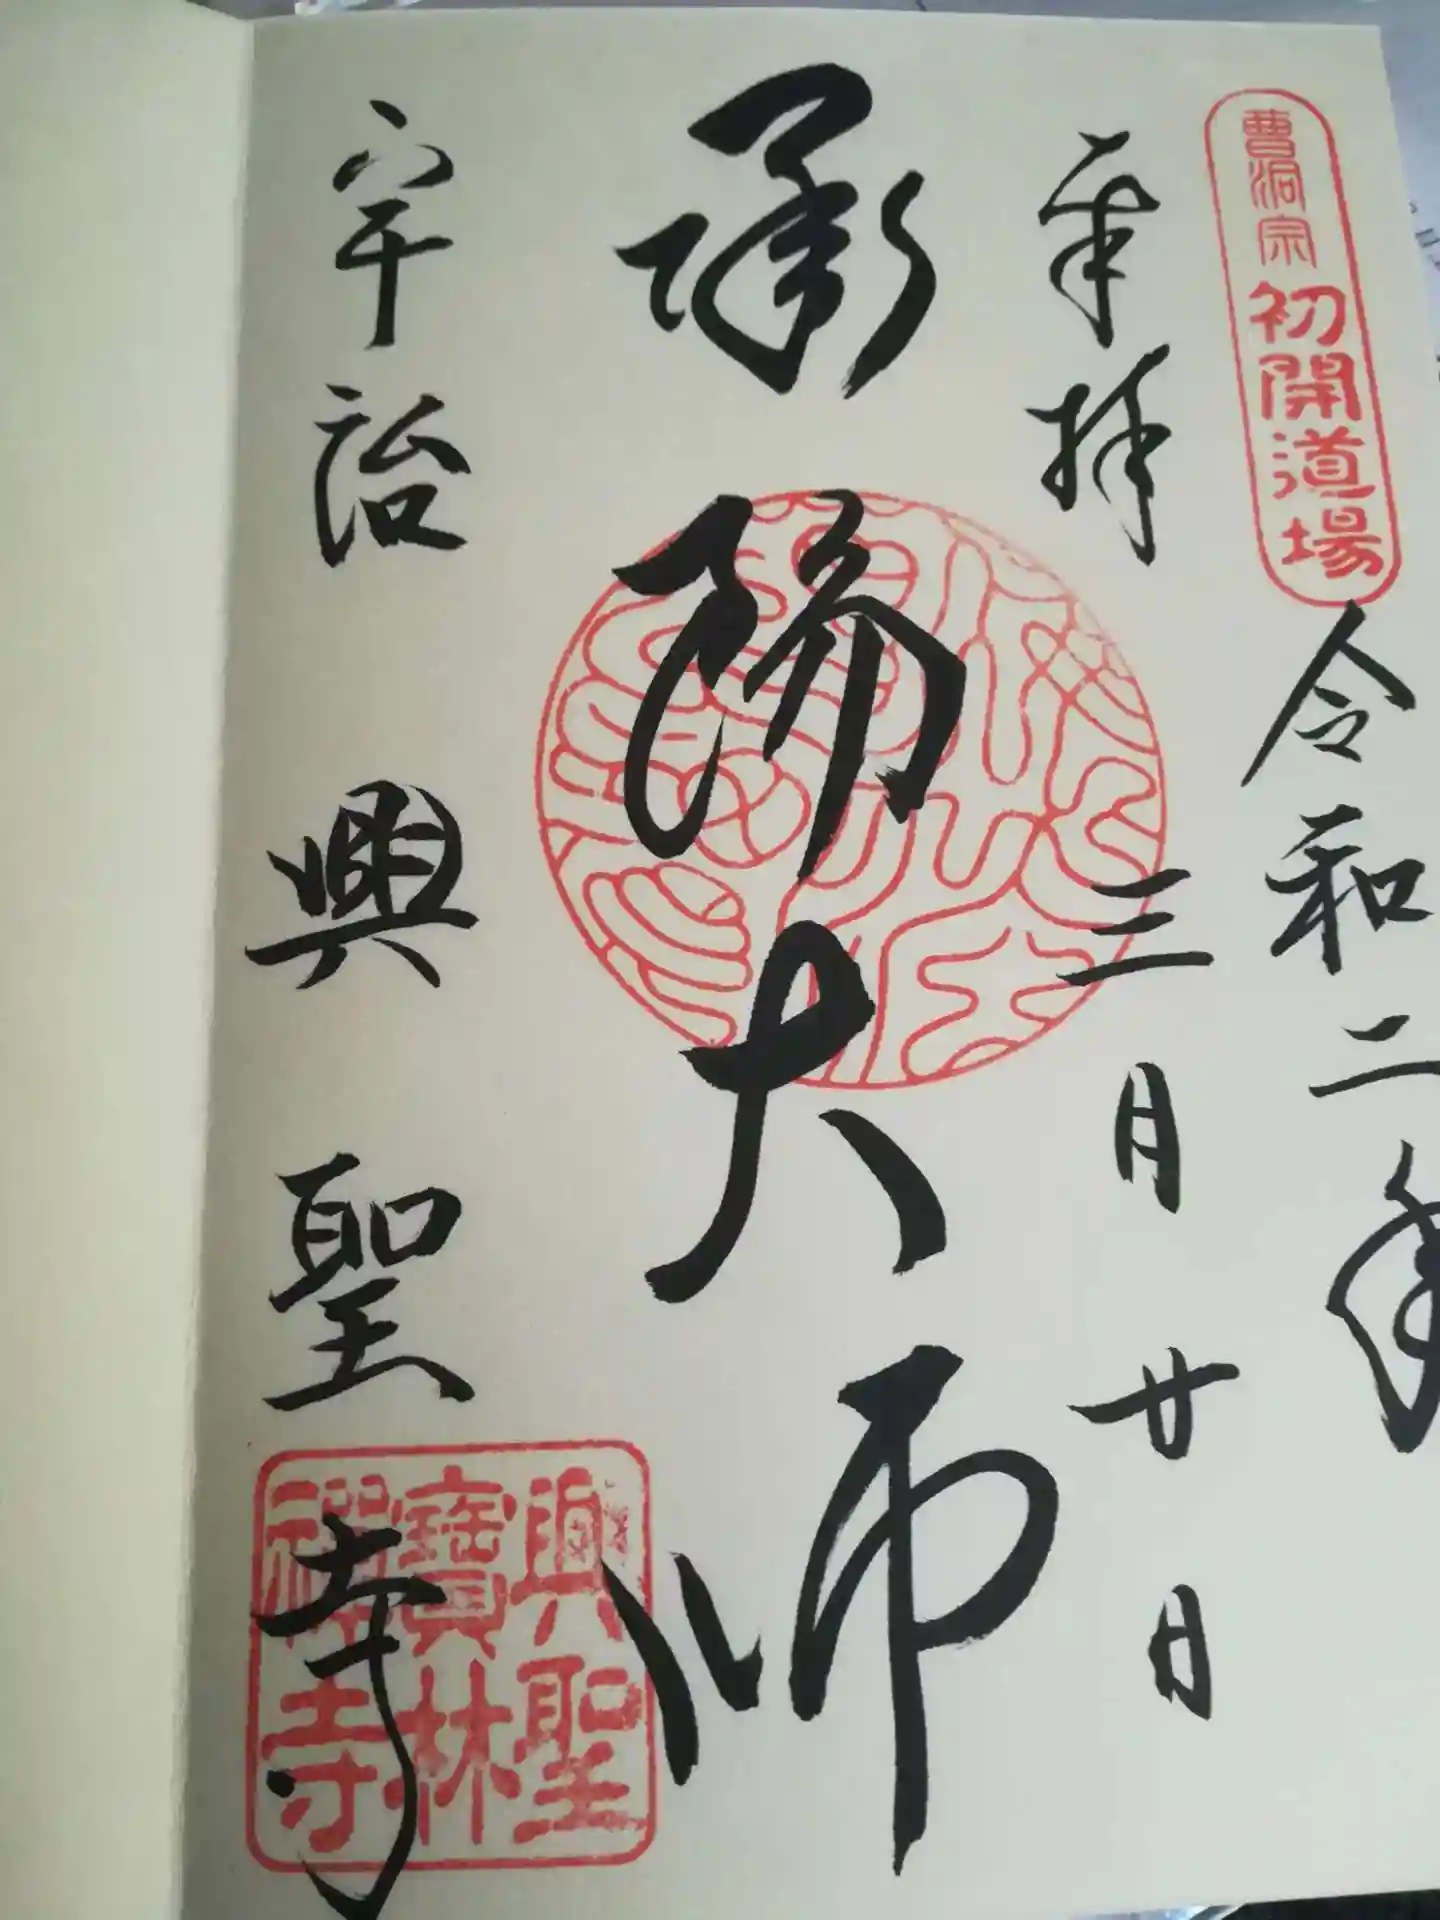 曹洞宗初開道場
令和二年
三月廿日
奉拝
承陽大師
宇治 興聖寺
興聖
寶林
禅寺